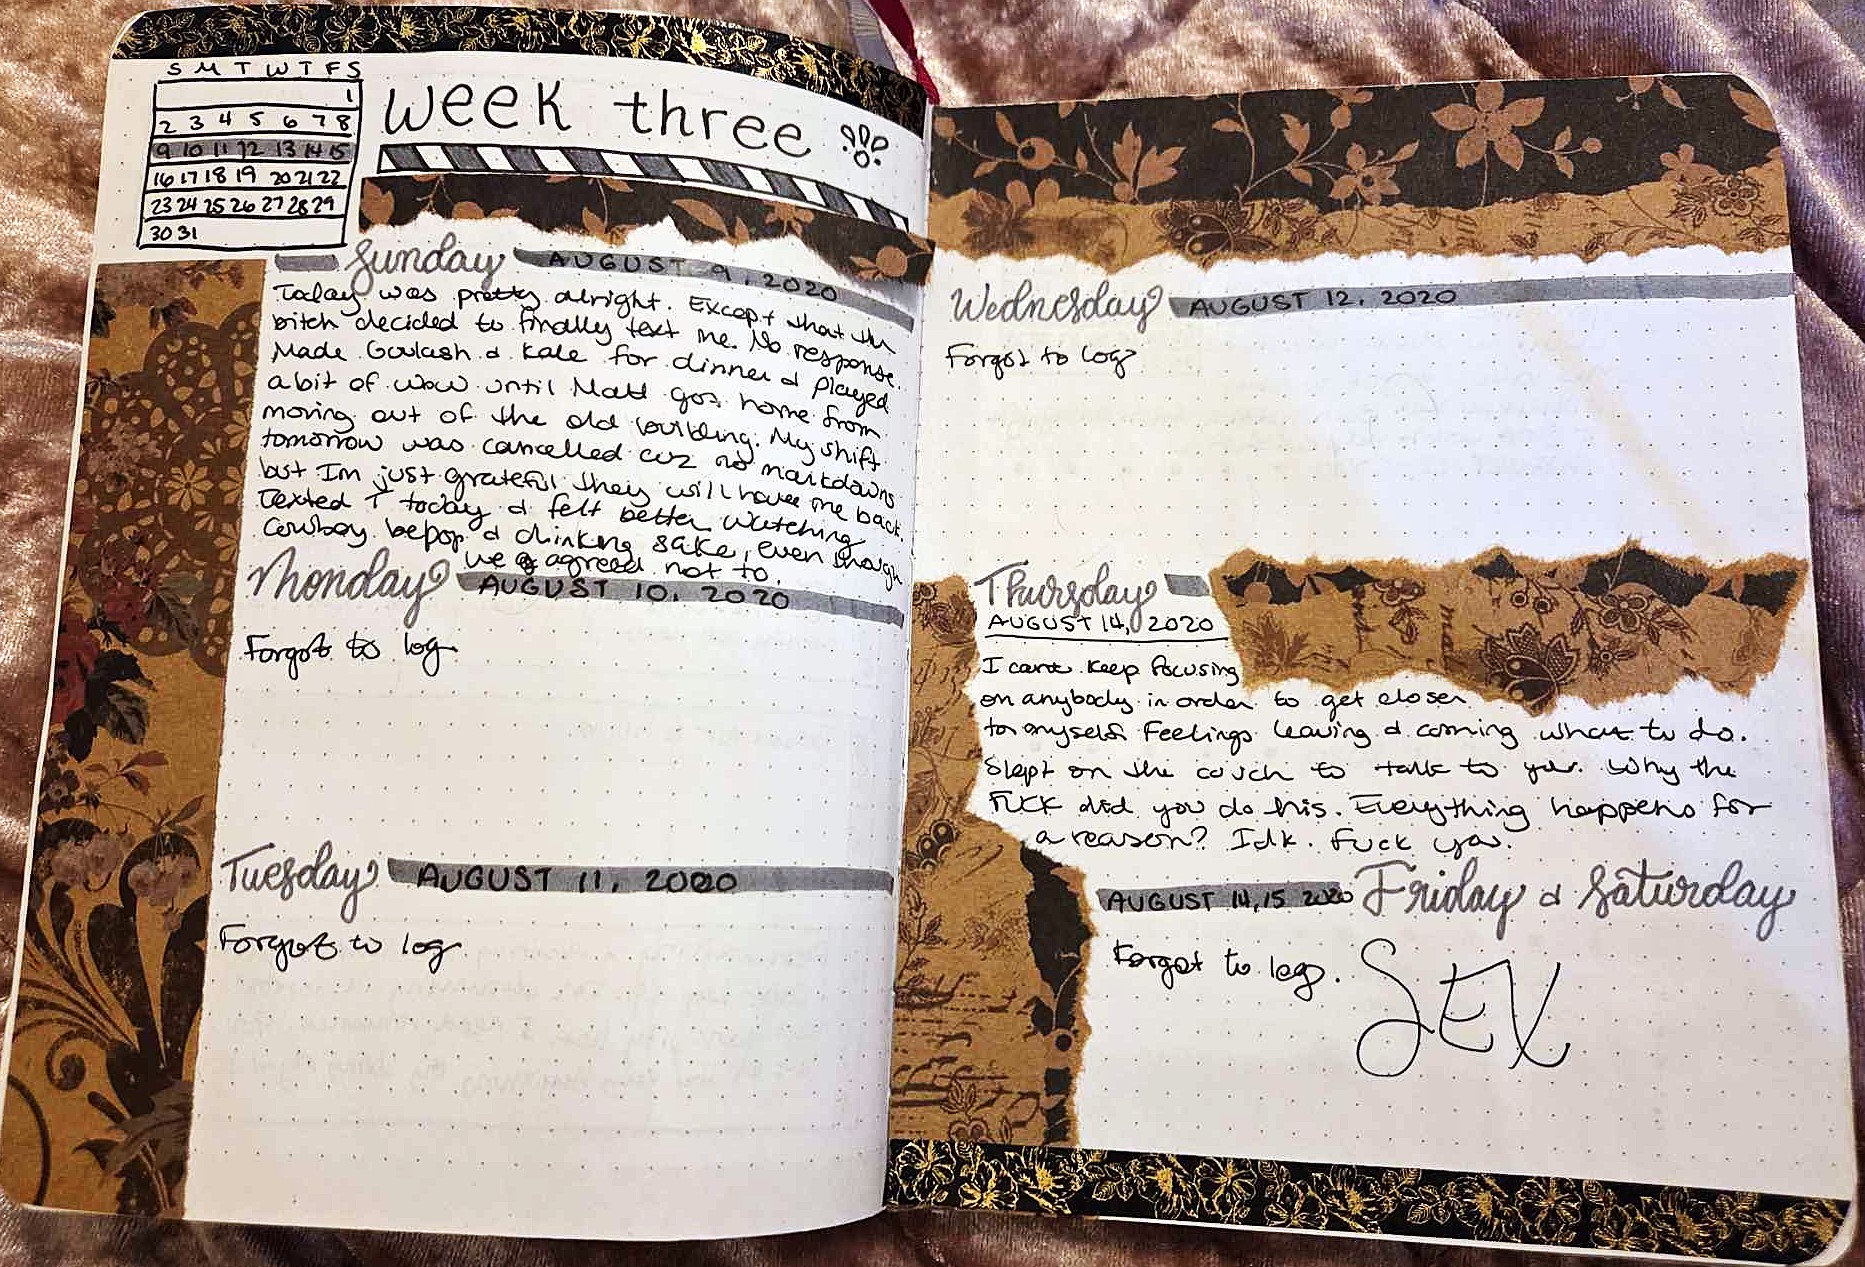 S M T W T F S
1
2 3 4 5 6 7 8
9 10 11 12 13 14 15
16 17 18 19 20 21 22
23 24 25 26 27 28 29
30 31
week three
Sunday AUGUST 9, 2020
Today was pretty alright. Except that the
bitch decided to finally text me. No response.
Made Goulash & Kale for dinner & played
a bit of wow until Matt got home from
moving out of the old building. My shift
tomorrow was cancelled cuz no markdowns
but Im just grateful they will have me back.
Texted T today & felt better watching
Cowboy bepop & drinking sake, even though
we agreed not to.
Monday AUGUST 10, 2020
Forgot to log
Tuesday AUGUST 11, 2020
Forgot to log
Wednesday AUGUST 12, 2020
Forgot to log
Thursday
AUGUST 14, 2020
I cant keep focusing
on anybody in order to get closer
to myself. Feelings leaving & coming what to do.
Slept on the couch to talk to you. Why the
FUCK did you do this. Everything happens for
a reason? Idk. Fuck you.
AUGUST 14, 15 2020 Friday & Saturday
Forgot to log.
SEX